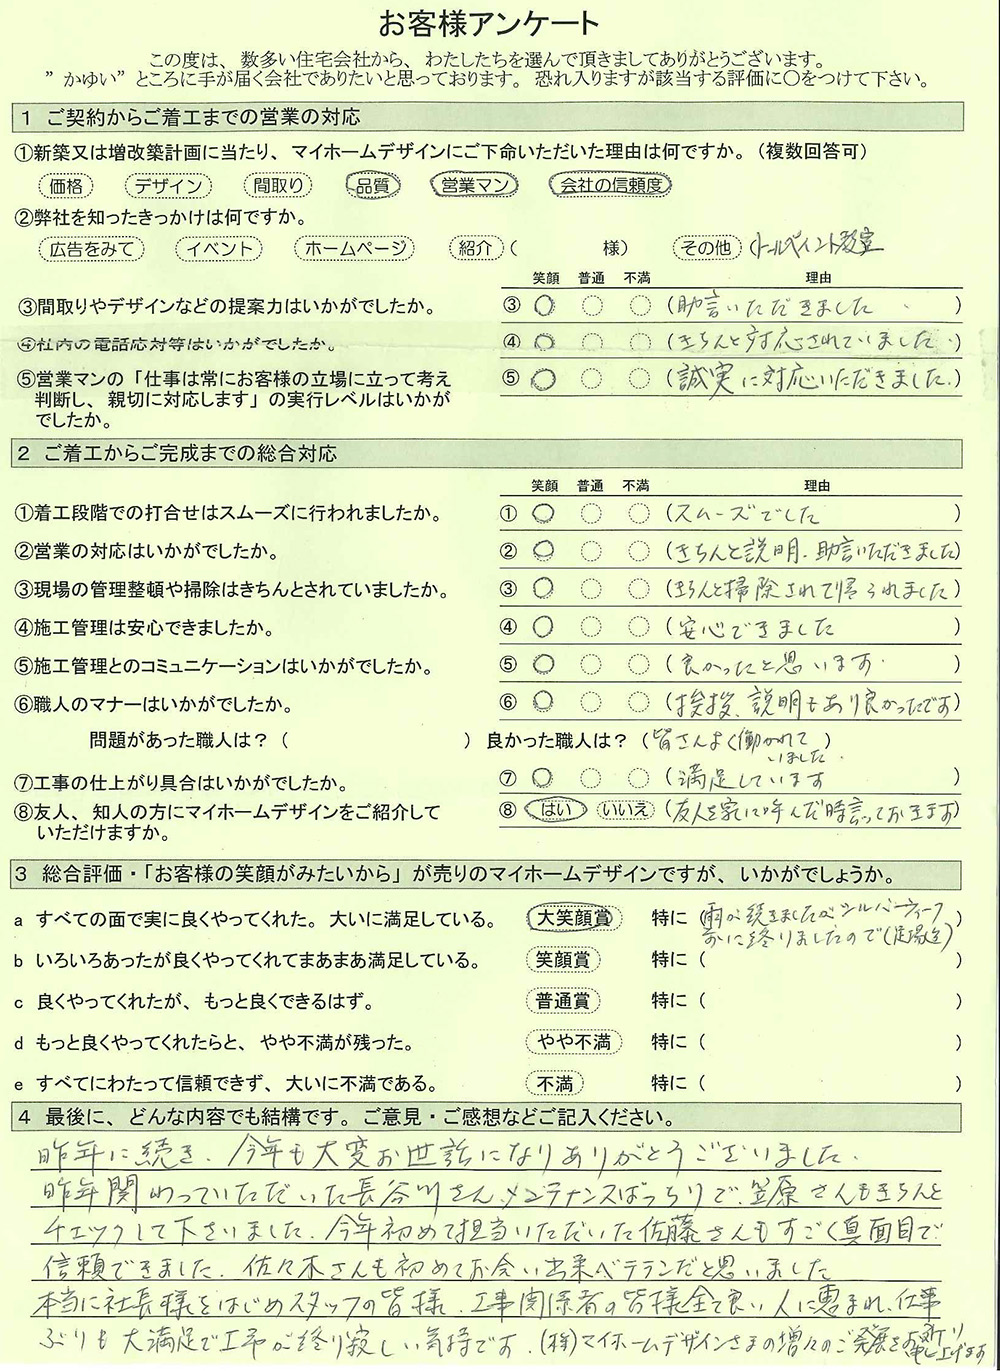 お客様アンケート
この度は、数多い住宅会社から、わたしたちを選んで頂きましてありがとうございます。
”かゆい”ところに手が届く会社でありたいと思っております。恐れ入りますが該当する評価に〇をつけて下さい。
1 ご契約からご着工までの営業の対応
①新築又は増改築計画に当たり、マイホームデザインにご下命いただいた理由は何ですか。（複数回答可）
価格 デザイン 間取り 品質 営業マン 会社の信頼度
②弊社を知ったきっかけは何ですか。
広告をみて イベント ホームページ 紹介 （ 様） その他 （トールペイント教室
笑顔 普通 不満 理由
③間取りやデザインなどの提案力はいかがでしたか。 ③ （助言いただきました ）
④社内の電話応対等はいかがでしたか。 ④ （きちんと対応されていました ）
⑤営業マンの「仕事は常にお客様の立場に立って考え ⑤ （誠実に対応いただきました.）
判断し、親切に対応します」の実行レベルはいかが
でしたか。
2 ご着工からご完成までの総合対応
笑顔 普通 不満 理由
①着工段階での打合せはスムーズに行われましたか。 ① （スムーズでした ）
②営業の対応はいかがでしたか。 ② （きちんと説明.助言いただきました）
③現場の管理整頓や掃除はきちんとされていましたか。 ③ （きちんと掃除されて帰られました）
④施工管理は安心できましたか。 ④ （安心できました ）
⑤施工管理とのコミュニケーションはいかがでしたか。 ⑤ （良かったと思います. ）
⑥職人のマナーはいかがでしたか。 ⑥ （挨拶、説明もあり良かったです）
問題があった職人は？（ ） 良かった職人は？（皆さんよく働かれて ）
いました.
⑦工事の仕上がり具合はいかがでしたか。 ⑦ （満足しています ）
⑧友人、知人の方にマイホームデザインをご紹介して ⑧ はい いいえ （友人を家に呼んだ時言っておきます）
いただけますか。
3 総合評価・「お客様の笑顔がみたいから」が売りのマイホームデザインですが、いかがでしょうか。
a すべての面で実に良くやってくれた。大いに満足している。 大笑顔賞 特に（雨が続きましたがシルバーウィーク ）
に終りましたので（足場迄）
b いろいろあったが良くやってくれてまあまあ満足している。 笑顔賞 特に（ ）
c 良くやってくれたが、もっと良くできるはず。 普通賞 特に（ ）
d もっと良くやってくれたらと、やや不満が残った。 やや不満 特に（ ）
e すべてにわたって信頼できず、大いに不満である。 不満 特に（ ）
4 最後に、どんな内容でも結構です。ご意見・ご感想などご記入ください。
昨年に続き.今年も大変お世話になりありがとうございました.
昨年関わっていただいた長谷川さん.メンテナンスばっちりで.笠原さんもきちんと
チェックして下さいました.今年初めて担当いただいた佐藤さんもすごく真面目で
信頼できました.佐々木さんも初めてお会い出来ベテランだと思いました
本当に社長様をはじめスタッフの皆様.工事関係者の皆様全て良い人に恵まれ、仕事
ぶりも大満足で工事が終り寂しい気持です.（株）マイホームデザインさまの増々のご発展をお祈り申し上げます